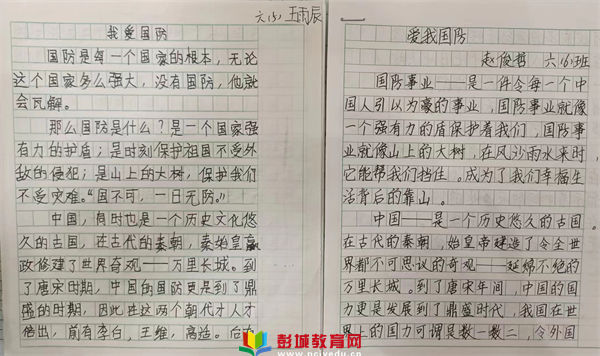 六(5) 王雨辰
我爱国防
国防是每一个国家的根本,无论
这个国家多么强大,没有国防,他就
会瓦解。
那么国防是什么?是一个国家强
有力的护盾;是时刻保护祖国不受外
敌的侵犯;是山上的大树,保护我们
不受灾难。“国不可,一日无防。”
中国,有时也是一个历史文化悠
久的古国,在古代的秦朝,秦始皇嬴
政修建了世界奇观——万里长城。到
了唐宋时期,中国的国防更是到了鼎
盛的时期,因此在这两个朝代才人才
倍出,前有李白,王维,高适。后有
爱我国防
赵俊哲 六(6)班
国防事业——是一件令每一个中
国人引以为豪的事业,国防事业就像
一个强有力的盾保护着我们,国防事
业就像山上的大树,在风沙雨水来时,
它能帮我们挡住。成为了我们幸福生
活背后的靠山。
中国——是一个历史悠久的古国。
在古代的秦朝,始皇帝建造了令全世
界都不可思议的奇观——延绵不绝的
万里长城。到了唐宋年间,中国的国
力更是发展到了鼎盛时代,我国在世
界上的国力可谓是数一数二,令外国
彭城教育网
www.pcjyedu.cn